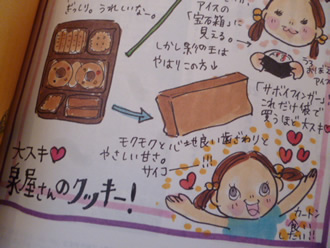 ぎっしり。うれしいな〜。
アイスの
「宝石箱」に
見える。
しかし祭りの王は
やはりこの方↓
「サボイフィンガー」
これだけ袋で
買うほど大スキ♥
モクモクと心地良い歯ざわりと
やさしい甘さ。
サイコーー!!!
大スキ♥
泉屋さんのクッキー!
カートン
食い
したい!!